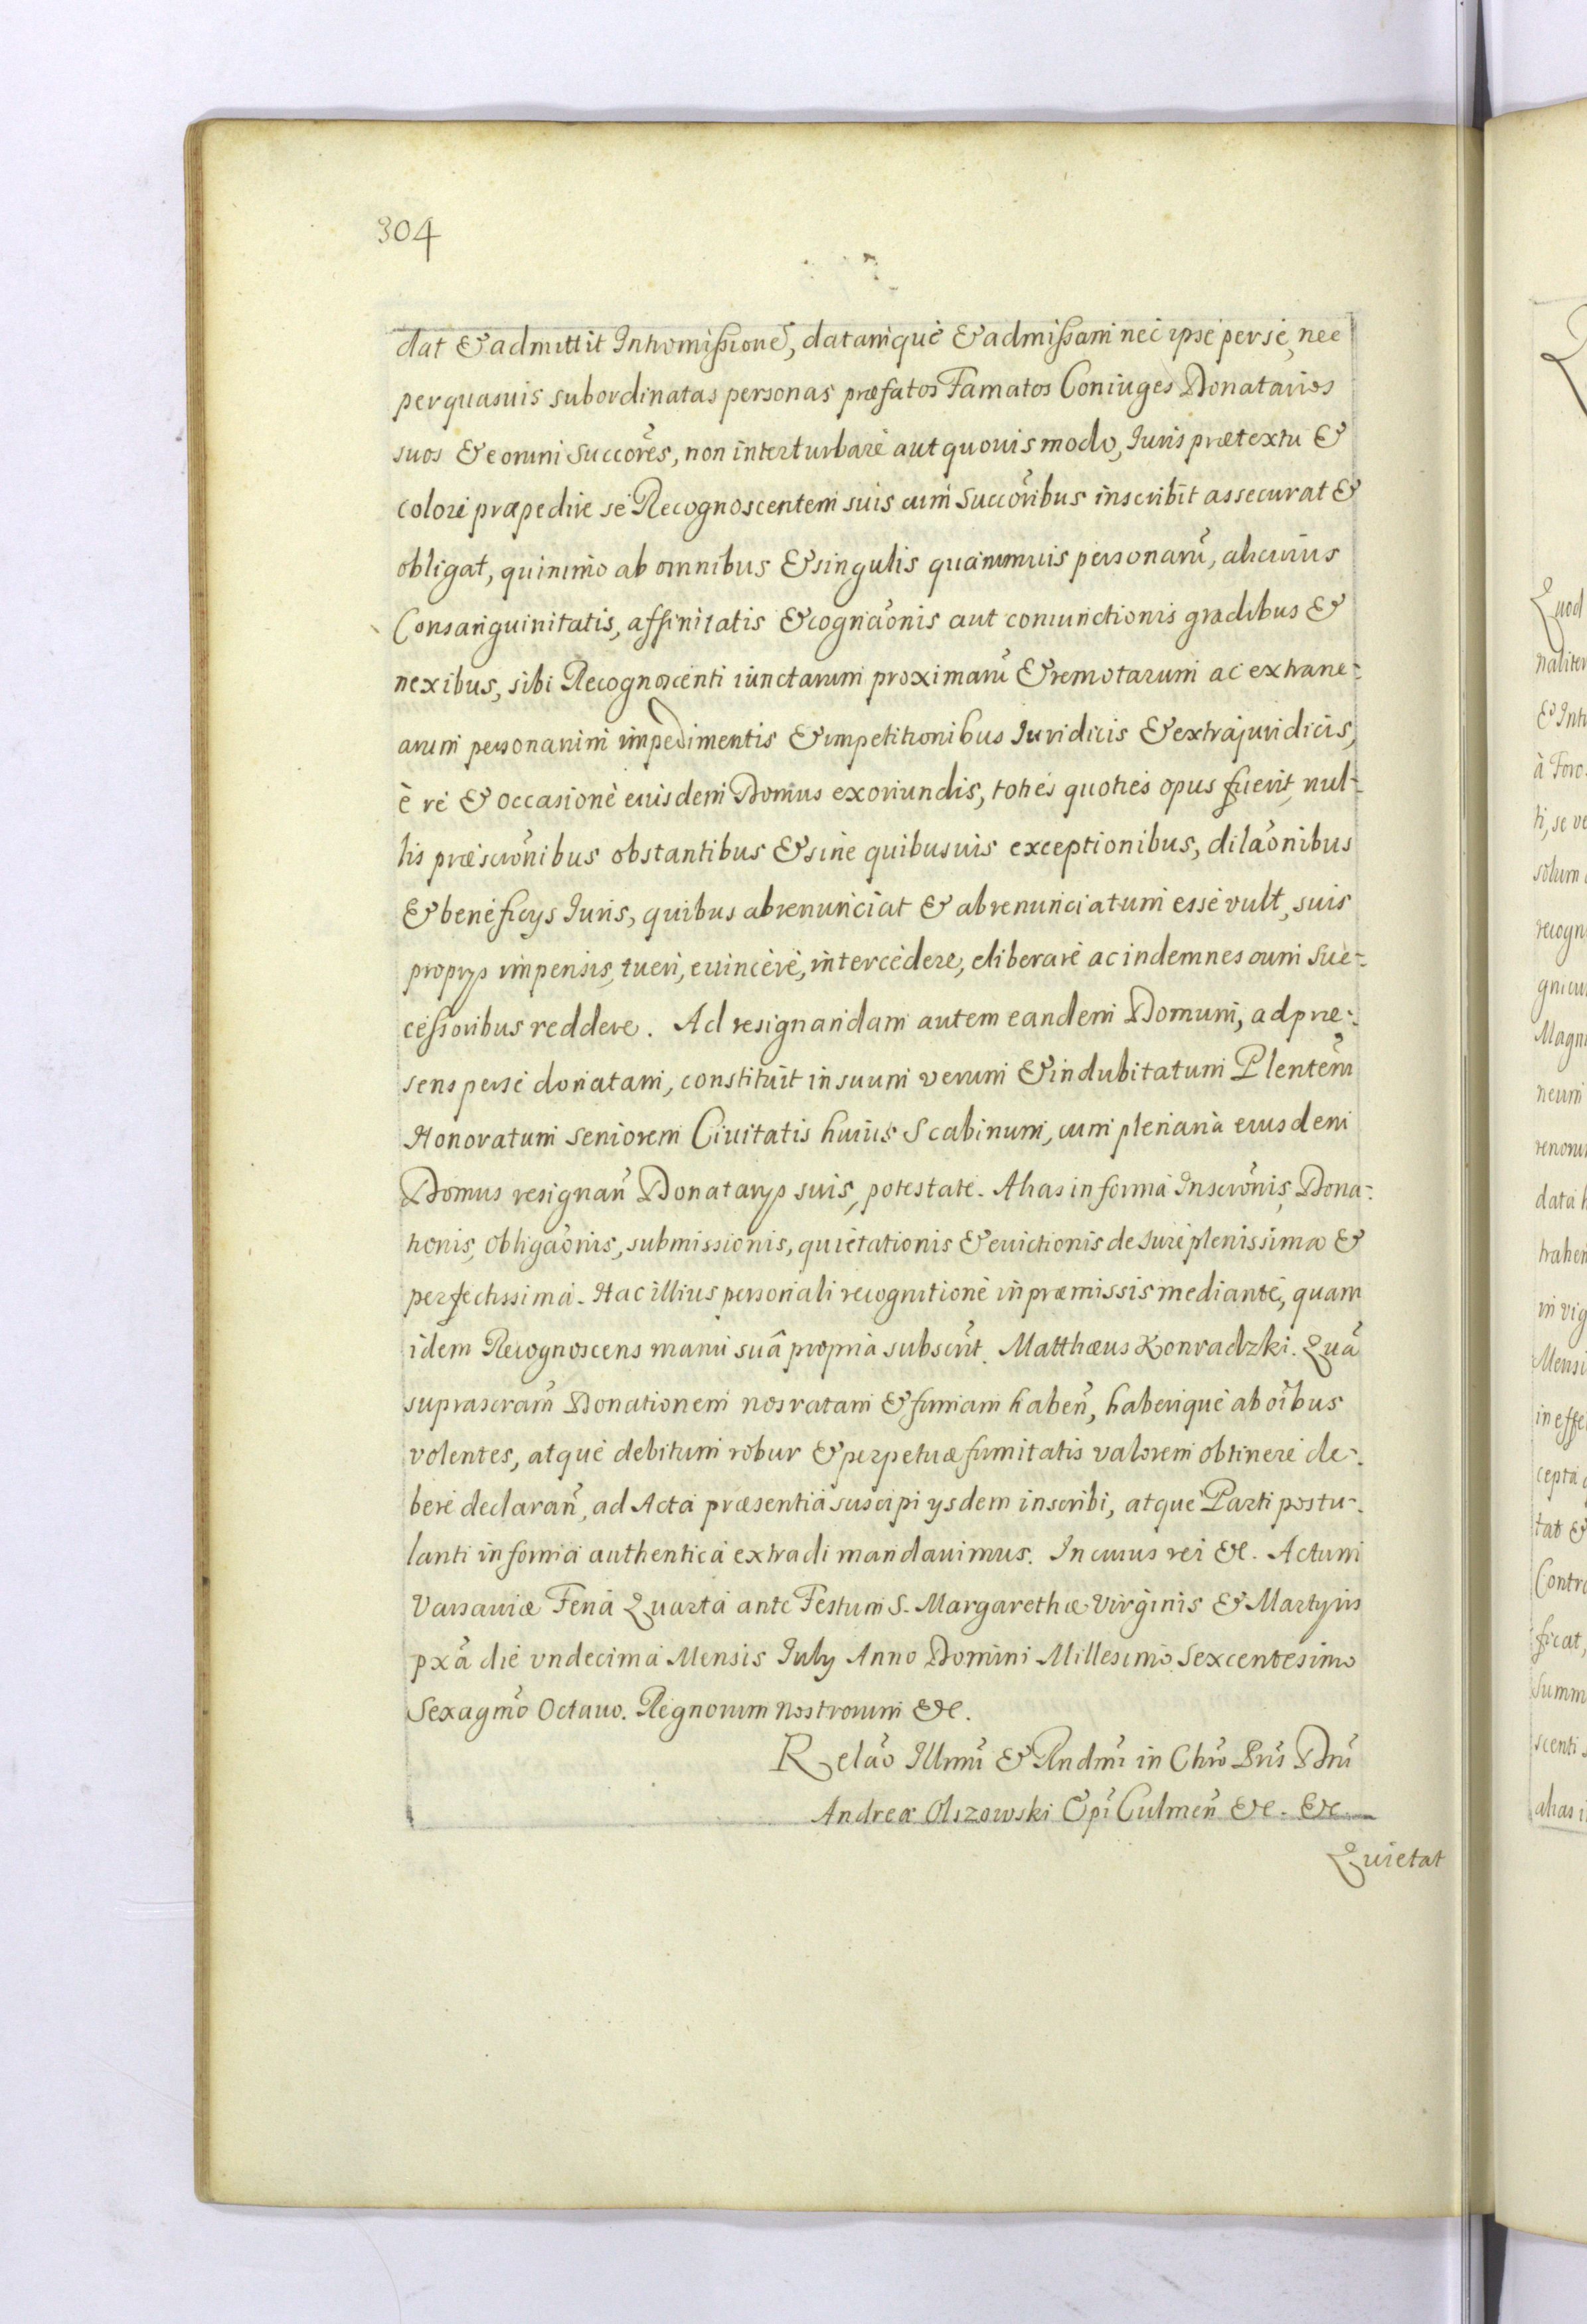 304
dat & admittit Intromissionē, datamque & admissam nec ipse per se, nec
per quasuis subordinatas personas præfatos Famatos Coniuges Donatarios
suos & eorum succōres, non interturbare aut quouis modo, Iuris prætextu &
colore præpedire se Recognoscentem suis cum succōribus inscribit assecurat &
obligat, quinimo ab omnibus & singulis quarumuis personarū, alicuius
Consanguinitatis, affinitatis & cognaōnis aut coniunctionis gradibus &
nexibus, sibi Recognoscenti iunctarum proximarū & remotarum ac extrane-
arum personarum impedimentis & impetitionibus Iuridicis & extrajuridicis,
è re & occasione eiusdem Domus exoriundis, toties quoties opus fuerit, nul-
lis præscrōnibus obstantibus & sine quibusuis exceptionibus, dilaōnibus
& beneficys Iuris, quibus abrenunciat & abrenunciatum esse vult, suis
proprys impensis, tueri, euincere, intercedere, eliberare ac indemnes cum suc-
cessoribus reddere. Ad resignandam autem eandem Domum, ad præ-
sens per se donatam, constituit in suum verum & indubitatum Plentem̃
Honoratum seniorem Ciuitatis huius Scabinum, cum plenaria eiusdem
Domus resignañ Donatarys suis, potestate. Alias in forma Inscrōnis, Dona-
tionis, obligaōnis, submissionis, quietationis & euictionis de Iure plenissima &
perfectissima. Hac illius personali recognitione in præmissis mediante, quam
idem Recognoscens manu suâ propria subscr̃t. Matthæus Konradzki. Quā
suprascram̃ Donationem nos ratam & firmam habeñ, haberique ab oībus
volentes, atque debitum robur & perpetuæ firmitatis valorem obtinere de-
bere declarañ, ad Acta præsentia suscipi ysdem inscribi, atque Parti postu-
lanti in forma authentica extradi mandauimus. In cuius rei &c. Actum
Varsauiæ Feria Quarta ante Festum S. Margarethæ Virginis & Martyris
pxā die vndecima Mensis July Anno Domini Millesimo Sexcentesimo
Sexagmō Octauo. Regnorum Nostrorum &c.
Relāo Illmī & Rndmī in Chrō Pris̃ Dnī
Andreæ Olszowski Epī Culmeñ &c. &c.
Quietat